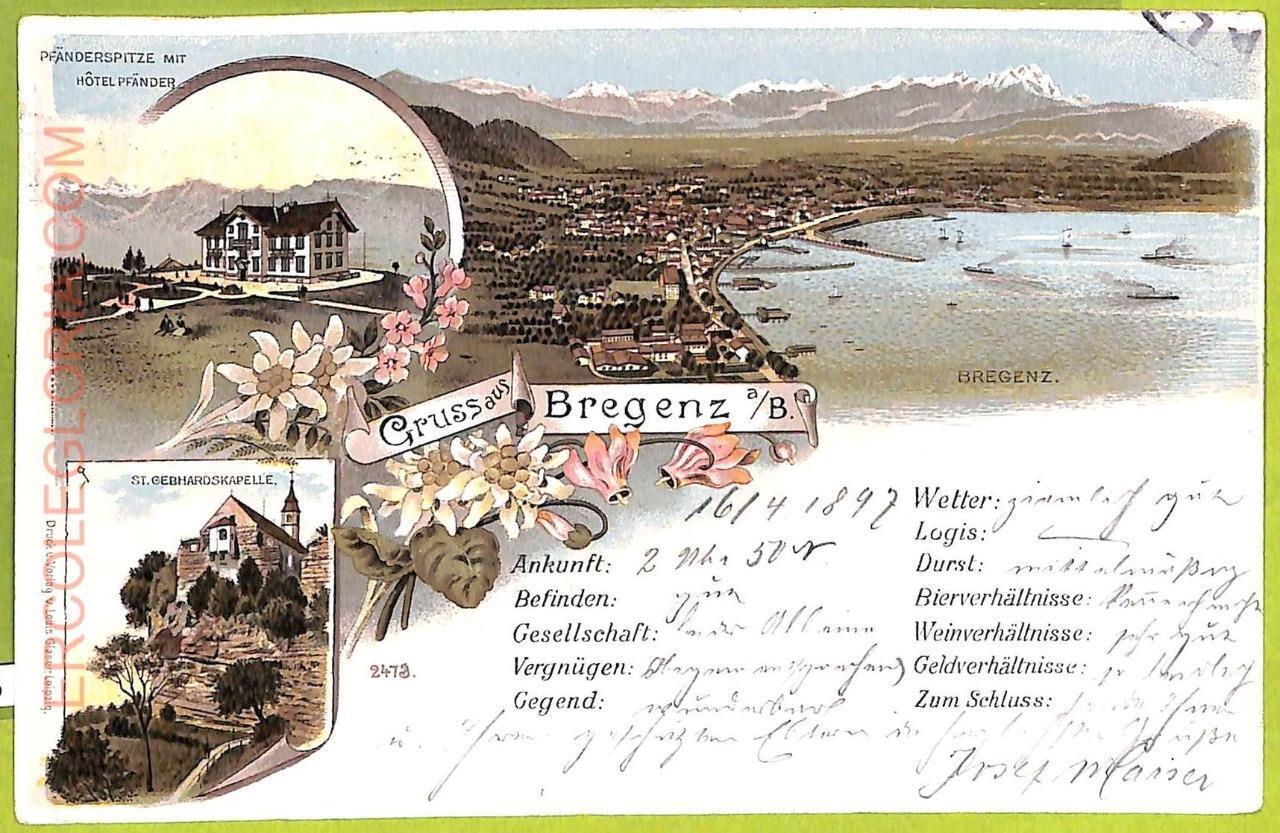 PFÄNDERSPITZE MIT
HÔTEL PFÄNDER.
BREGENZ.
Gruss aus Bregenz a/B.
ST. GEBHARDSKAPELLE.
Druck u. Verlag v. Louis Glaser, Leipzig.
ERCOLEGLORIA.COM
2473.
16/4 1897
Ankunft: 2 Uhr 50 N
Befinden: gut
Gesellschaft: leider Alleine
Vergnügen:
Gegend: wunderbar
Wetter: ziemlich gut
Logis: —
Durst: mittelmäßig
Bierverhältnisse:
Weinverhältnisse: sehr gut
Geldverhältnisse: so
Zum Schluss: sende Ihnen
u. Ihren geschätzten Eltern die herzlichsten Grüße
Josef Maiser